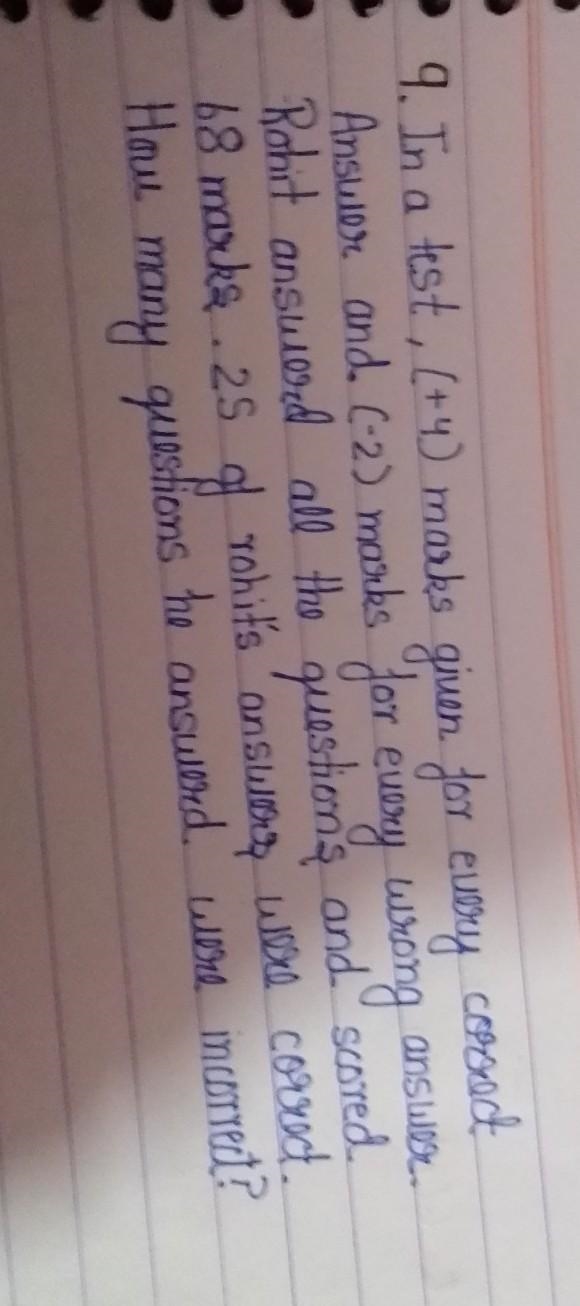 9. In a test, (+4) marks given for every correct
Answer and (-2) marks for every wrong answer.
Rohit answered all the questions and scored
68 marks. 25 of rohit's answers were correct.
How many questions he answered were incorrect?